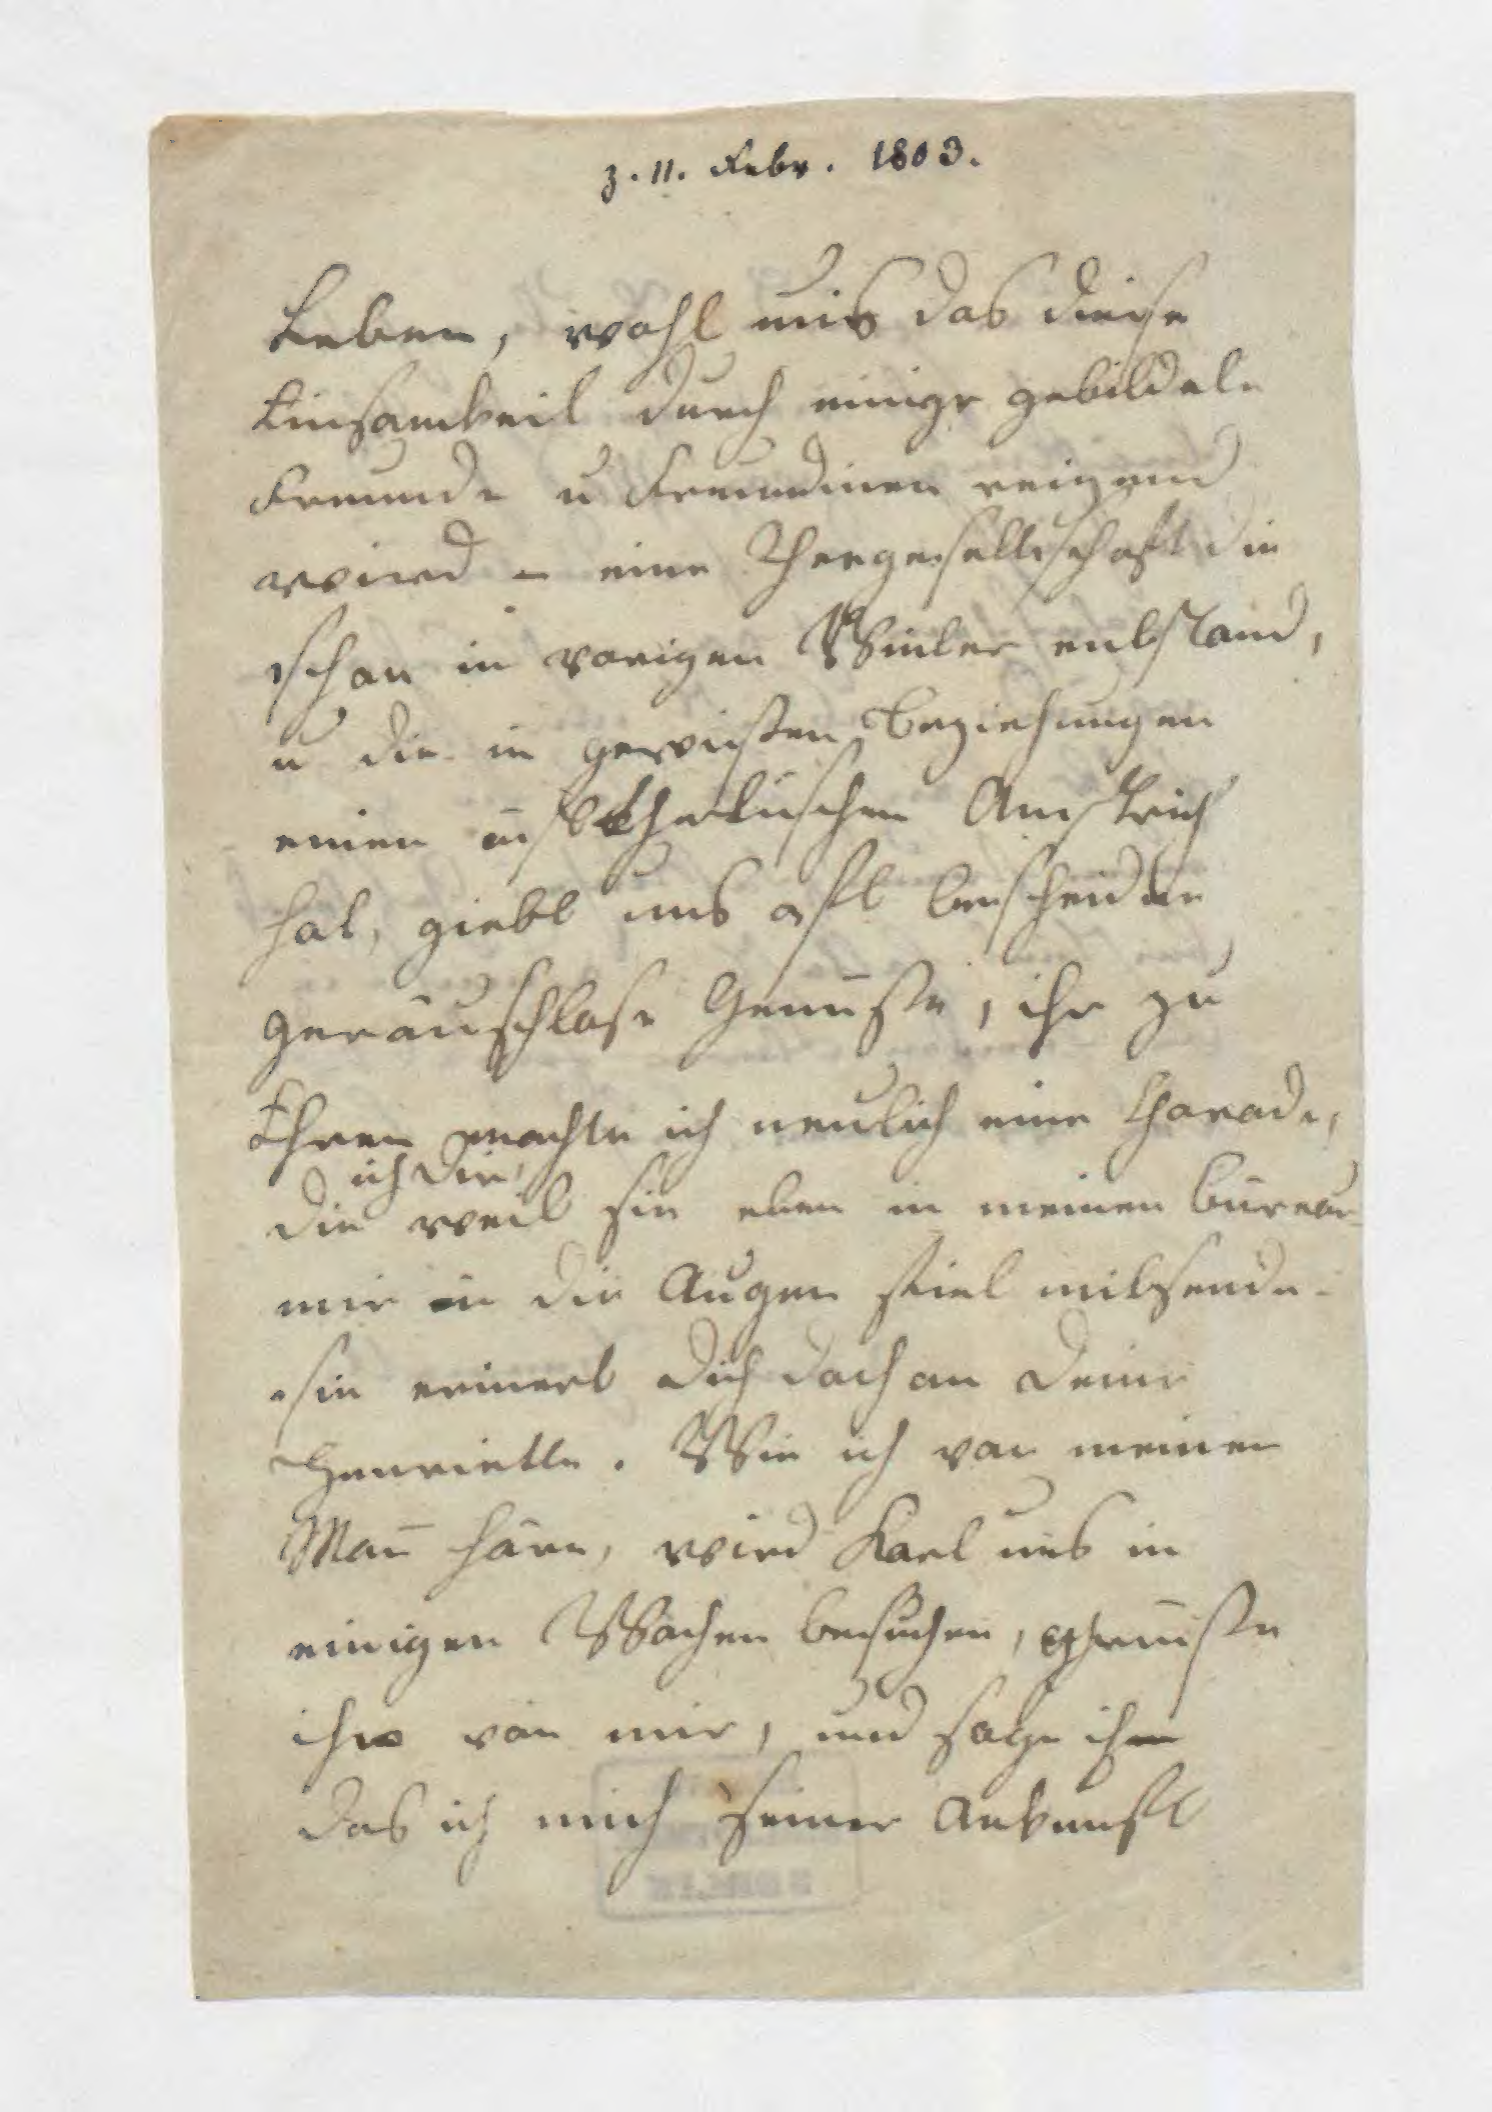 z. 11. Febr. 1803.
Leben, wohl uns das diese
Einsamkeit durch einige gebildete
Freunde u Freundinen reizend
wird – eine Theegesellschaft die
schon in vorigen Winter entstand,
u die in gewißen Beziehungen
einen ästhetischen Anstrich
hat, giebt uns oft bescheidne
geräuschlose Genüße, ihr zu
Ehren machte ich neulich eine Charade,
ich dir,
die weil sie eben in meinen bureau
mir in die Augen fiel mitsende.
sie erinert dich doch an deine
Henriette. Wie ich von meinen
Man̄ höre, wird Karl uns in
einigen Wochen besuchen, grüße
ihn von mir, und sage ihm
das ich mich seiner Ankunft